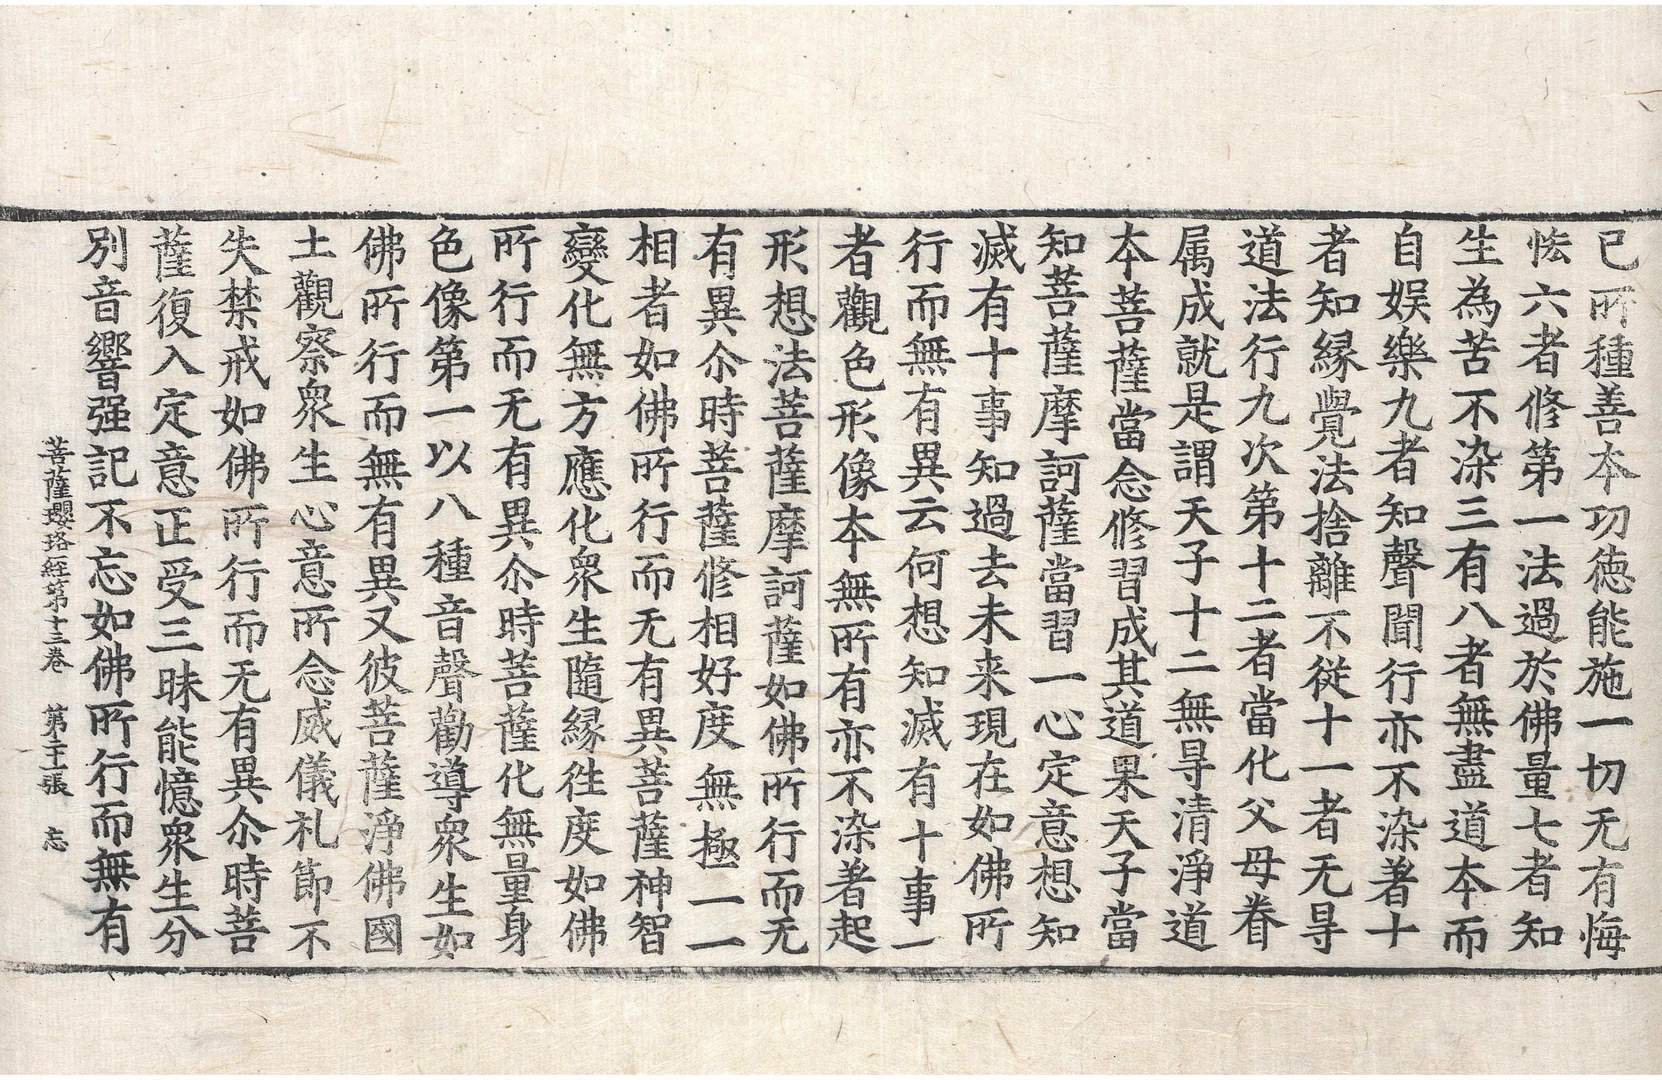 已所種善本功德能施一切无有悔
恡六者修第一法過於佛量七者知
生為苦不染三有八者無盡道本而
自娱樂九者知聲聞行亦不染著十
者知縁覺法捨離不從十一者无㝵
道法行九次第十二者當化父母眷
属成就是謂天子十二無㝵清淨道
本菩薩當念修習成其道果天子當
知菩薩摩訶薩當習一心定意想知
滅有十事知過去未来現在如佛所
行而無有異云何想知滅有十事一
者觀色形像本無所有亦不染著起
形想法菩薩摩訶薩如佛所行而无
有異尒時菩薩修相好度無極一一
相者如佛所行而无有異菩薩神智
變化無方應化衆生隨縁徃度如佛
所行而无有異尒時菩薩化無量身
色像第一以八種音聲勸導衆生如
佛所行而無有異又彼菩薩淨佛國
土觀察衆生心意所念威儀礼節不
失禁戒如佛所行而无有異尒時菩
薩復入定意正受三昧能憶衆生分
別音響强記不忘如佛所行而無有
菩薩瓔珞經第十三卷 第二十一張 忘